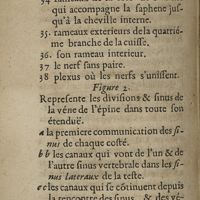 qui accompagne la saphene jus-
qu'à la cheville interne.
35. rameaux exterieurs de la quatrié-
me branche de la cuisse.
36. son rameau interieur.
37 le nerf sans paire.
38 plexus où les nerfs s'unissent.
Figure 2.
Represente les divisions & sinus de
la véne de l'épine dans toute son
étenduë.
a la premiere communication des si-
nus de chaque costé.
b b les canaux qui vont de l'un & de
l'autre sinus vertebrale dans les si-
nus lateraux de la teste.
c c les canaux qui se cōtinuent depuis
la rencontre des sinus, & des vé-